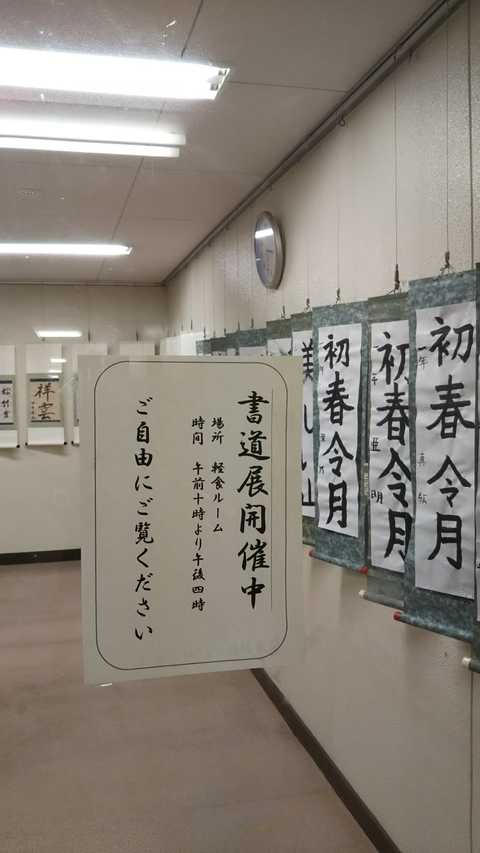 書道展開催中
場所　軽食ルーム
時間　午前十時より午後四時
ご自由にご覧ください
初春令月
初春令月
初春令月
祥雲